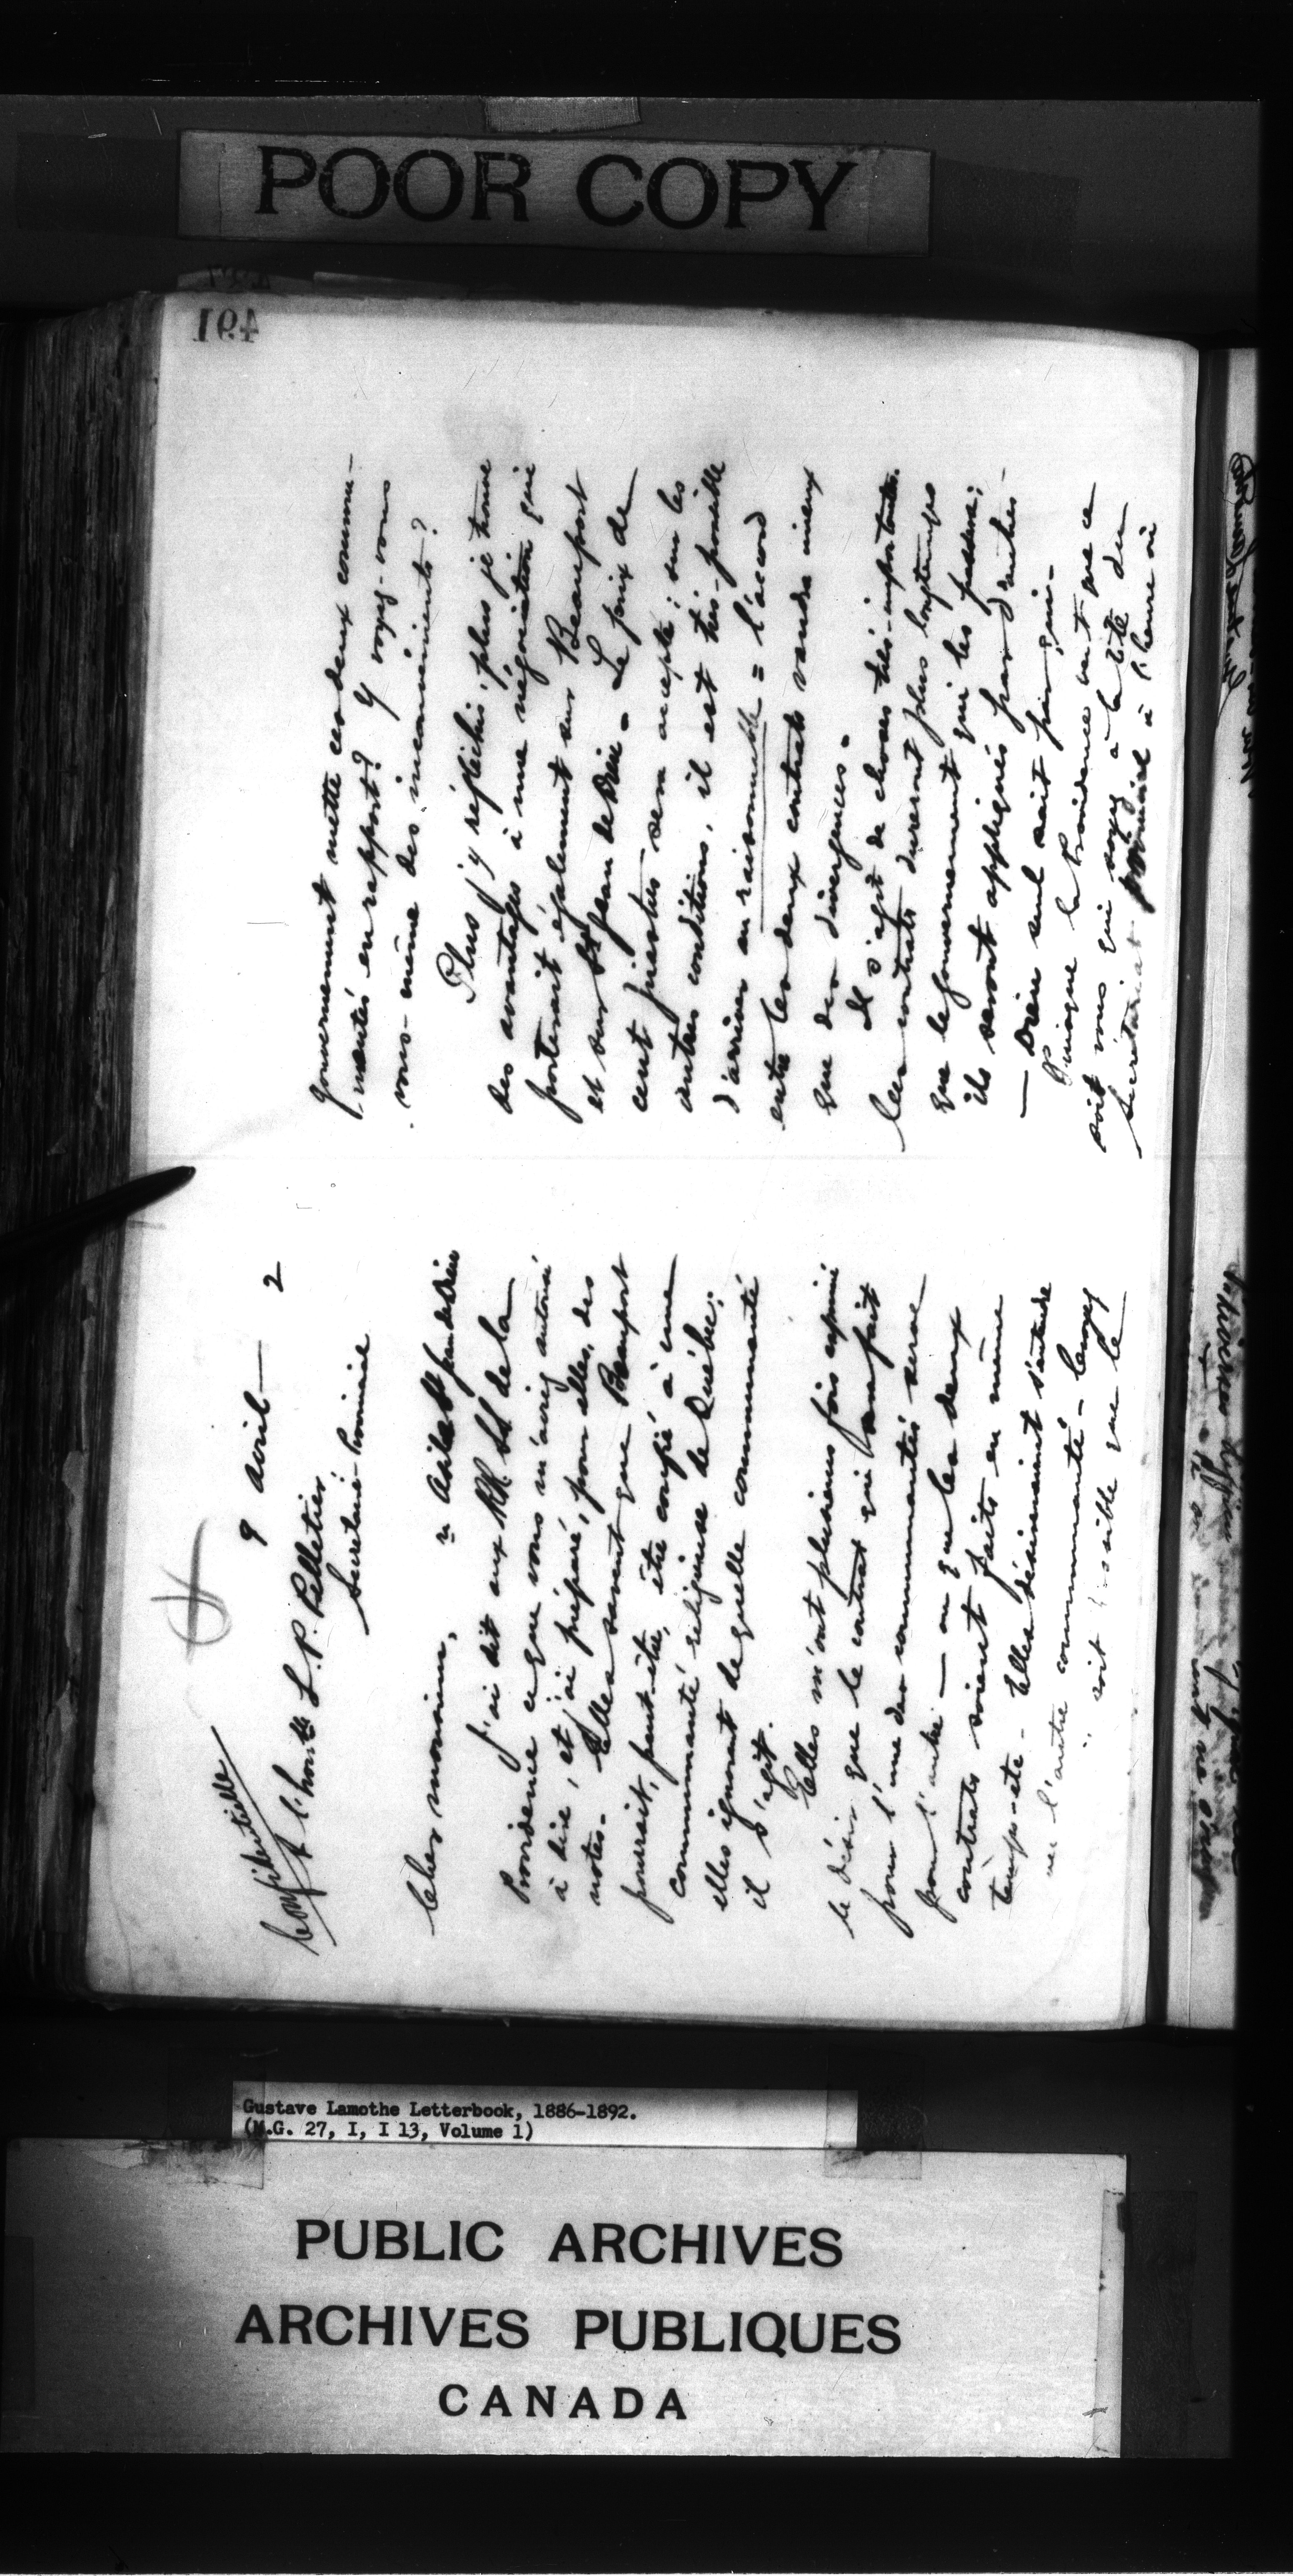 POOR COPY
491
Confidentielle
9 avril — 2
A l'honble L. P. Pelletier
Secrétaire Provincial
Cher monsieur,
re Asile St Jean de Dieu
J'ai dit aux RR. SS. de la
Providence ce que vous m'aviez autorisé
à dire, et j'ai préparé, pour elles, des
notes. Elles savent que Beauport
pourrait, peut-être, être confié à une
communauté religieuse de Québec;
elles ignorent de quelle communauté
il s'agit.
Elles m'ont plusieurs fois exprimé
le désir que le contrat qui sera fait
pour l'une des communautés serve
pour l'autre — ou que les deux
contrats soient faits en même
temps — etc — Elles désireraient s'entendre
avec l'autre communauté — Croyez
soit possible que le
gouvernement mette ces deux commu-
nautés en rapport? Y voyez-vous
vous-même des inconvénients?
Plus j'y réfléchis, plus je trouve
des avantages à une négociation qui
porterait également sur Beauport
et sur St Jean de Dieu — Le prix de
cent piastres sera accepté; sur les
autres conditions, il est très-possible
d'arriver au raisonnable = l'accord
entre les deux contrats vaudra mieux
que des divergences —
Il s'agit de choses très-importantes.
Les contrats dureront plus longtemps
que le gouvernement qui les passera;
ils seront appliqués par d'autres —
— Dieu seul sait par qui —
Puisque la Providence veut que ce
soit vous qui soyez à la tête du
Secrétariat provincial à l'heure où
Gustave Lamothe Letterbook, 1886-1892.
(M.G. 27, I, I 13, Volume 1)
PUBLIC ARCHIVES
ARCHIVES PUBLIQUES
CANADA